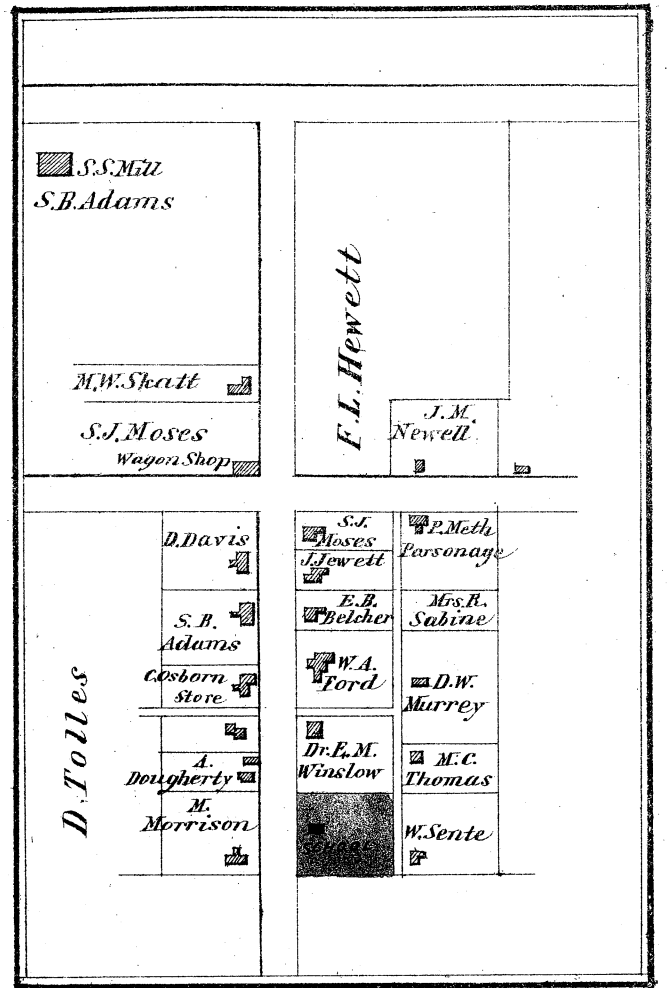 S.S.Mill
S.B.Adams
F.L.Hewett
M.W.Skatt
S.J.Moses
Wagon Shop
J.M.
Newell
D.Davis
S.B.
Adams
C.Osborn
Store
D.Tolles
A.
Dougherty
M.
Morrison
S.J.
Moses
J.Jewett
E.B.
Belcher
W.A.
Ford
Dr.E.M.
Winslow
SCHOOL
P.Meth
Parsonage
Mrs.R.
Sabine
D.W.
Murrey
M.C.
Thomas
W.Sente